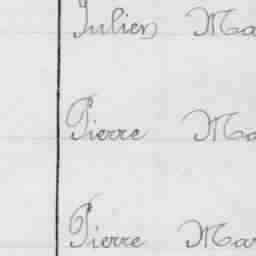 Julien Ma
Pierre Ma
Pierre Mar